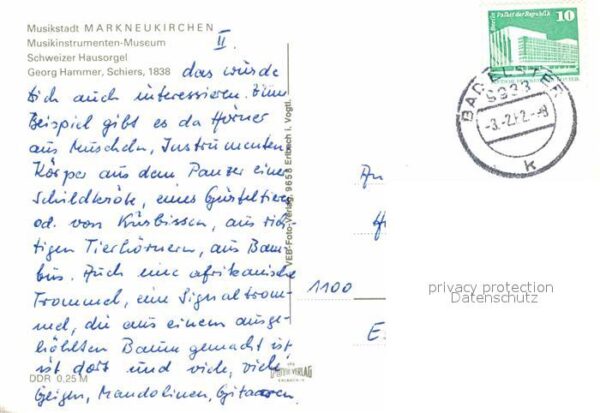 Musikstadt MARKNEUKIRCHEN
Musikinstrumenten-Museum
Schweizer Hausorgel
Georg Hammer, Schiers, 1838
II.
das würde
Dich auch interessieren. Zum
Beispiel gibt es da Hörner
aus Muscheln, Instrumenten-
Körper aus dem Panzer einer
Schildkröte, eines Gürteltieres
od. von Kürbissen, aus rich-
tigen Tierhörnern, aus Bam-
bus. Auch eine afrikanische
Trommel, eine Signaltrom-
mel, die aus einem ausge-
höhlten Baum gemacht ist
ist dort und viele, viele
Geigen, Mandolinen, Gitarren
DDR 0,25 M
VEB-Foto-Verlag, 9658 Erlbach i. Vogtl.
VERLAG
Berlin, Palast der Republik
10
DDR
BAD ELSTER
9933
k
An
1100
E
privacy protection
Datenschutz